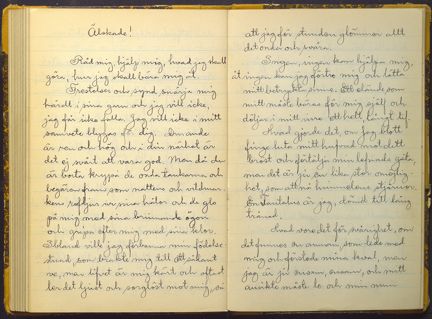 Älskade!
Råd mig, hjälp mig, hvad jag skall
göra, hur jag skall bära mig åt.
Frestelser och synd snärja mig
hårdt i sina garn och jag vill icke,
jag får icke falla. Jag vill icke i mitt
samvete blygas för dig. Din ande
är ren och hög och i din närhet är
det ej svårt att vara god. Men då du
är borta krypa de onda tankarna och
begären fram som nattens och vildmar-
kens rofdjur ur sina hålor och de glo
på mig med sina brinnande ögon
och gripa efter mig med sina klor.
Ibland vill jag förbanna min födelse
stund, som bragte mig till ett sådant
ve, men lifvet är mig kärt och oftast
ler det ljust och sorglöst mot mig, så
att jag för stunden glömmer allt
det onda och svåra.
Ingen, ingen kan hjälpa mig,
ingen kan jag förtro mig och lätta
mitt betryckta sinne. Ett elände som
mitt måste bäras för mig själf och
döljas i mitt inre ett helt långt lif.
Hvad gjorde det, om jag blott
finge luta mitt hufvud mot ditt
bröst och förtälja min lefnads gåta,
men det är ju en lika stor omöjlig-
het, som att nå himmelens stjärnor.
En Tantalus är jag, dömd till evig
trånad.
Hvad vore det för svårighet, om
det funnes en annan, som lede med
mig och förstode mina kval, men
jag är ju ensam, ensam, och mitt
ansikte måste le och min mun